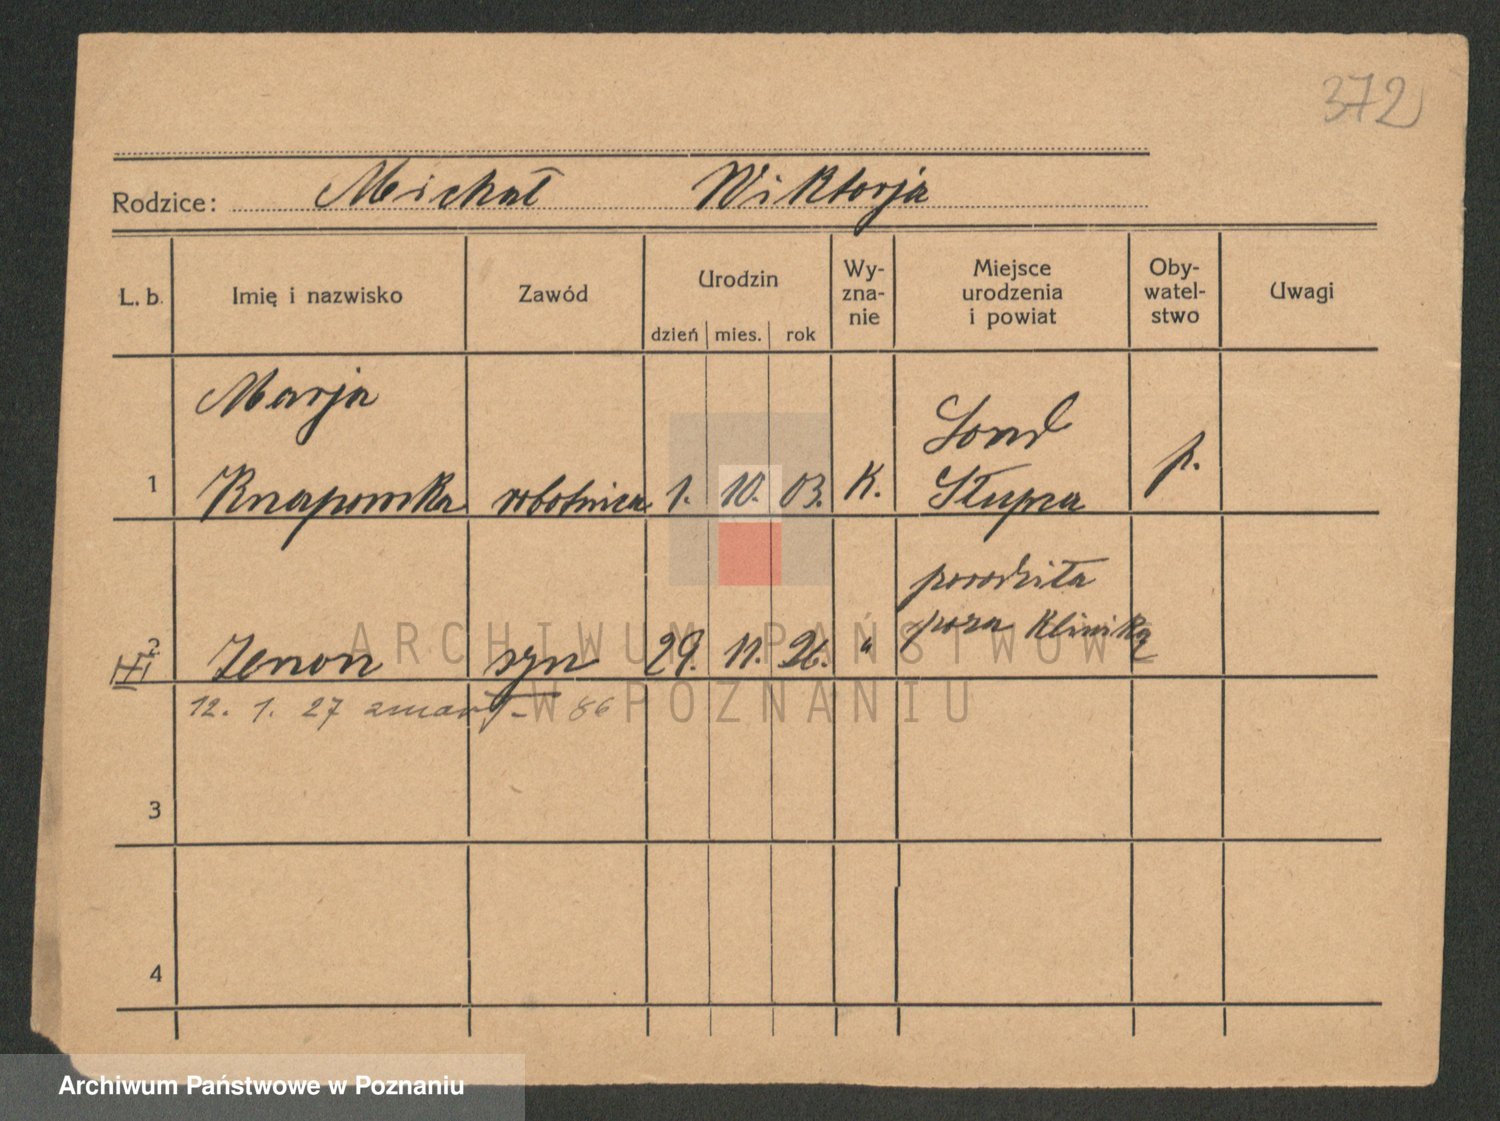 372
Rodzice: Michał Wiktorja
L. b. Imię i nazwisko Zawód Urodzin Wy-zna-nie Miejsce urodzenia i powiat Oby-watel-stwo Uwagi
dzień mies. rok
Marja Lond
1 Knapowska robotnica 1. 10. 03. K. Słupca p.
porodziła
poza Kliniką
2 Zenon syn 29. 11. 26. "
12. 1. 27 zmarł - 86
3
4
ARCHIWUM PAŃSTWOWE
W POZNANIU
Archiwum Państwowe w Poznaniu